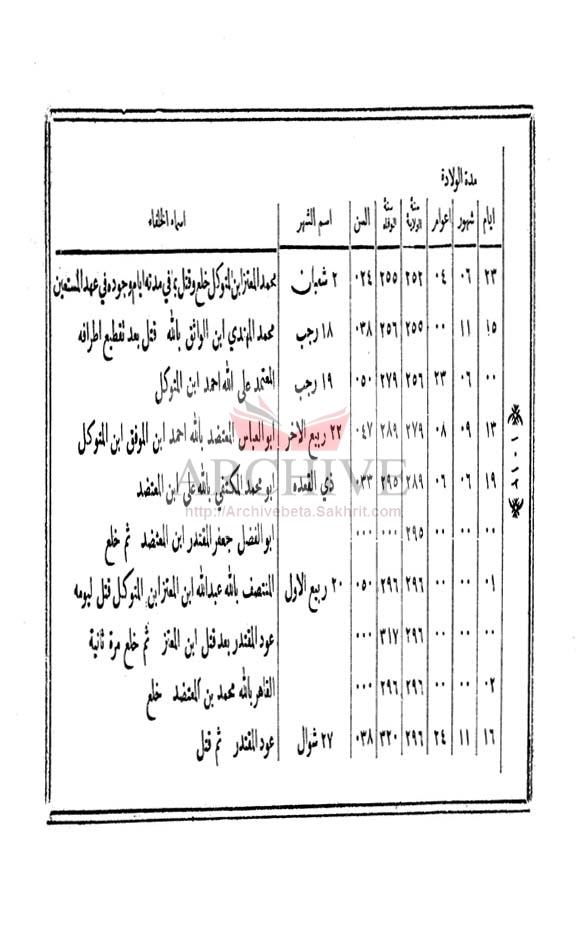 مدة الولادة
ايام شهور اعوام سنة الولاية سنة الوفاه السن اسم الشهر اسماء الخلفاء
٢٣ ٠٦ ٠٤ ٢٥٢ ٢٥٥ ٠٢٤ ٢ شعبان محمد المعتز ابن المتوكل خلع وقتل ؛ في مدته ايام وجوده في عهد المستعين
١٥ ١١ ٠٠ ٢٥٥ ٢٥٦ ٠٣٨ ١٨ رجب محمد المهتدي ابن الواثق بالله قتل بعد تقطيع اطرافه
٠٠ ٠٦ ٢٣ ٢٥٦ ٢٧٩ ٠٥٠ ١٩ رجب المعتمد على الله احمد ابن المتوكل
١٣ ٠٩ ٠٨ ٢٧٩ ٢٨٩ ٠٤٧ ٢٢ ربيع الاخر ابو العباس المعتضد بالله احمد ابن الموفق ابن المتوكل
١٩ ٠٦ ٠٦ ٢٨٩ ٢٩٥ ٠٣٣ ذي القعده ابو محمد المكتفي بالله علي ابن المعتضد
٠٠ ٠٠ ٠٠ ٢٩٥ ٠٠٠ ٠٠٠ ابو الفضل جعفر المقتدر ابن المعتضد ثم خلع
٠١ ٠٠ ٠٠ ٢٩٦ ٢٩٦ ٠٥٠ ٢٠ ربيع الاول المنتصف بالله عبدالله ابن المعتز ابن المتوكل قتل ليومه
٠٠ ٠٠ ٠٠ ٢٩٦ ٣١٧ ٠٠٠ عود المقتدر بعد قتل ابن المعتز ثم خلع مرة ثانية
٠٢ ٠٠ ٠٠ ٢٩٦ ٢٩٦ ٠٠٠ القاهر بالله محمد بن المعتضد خلع
١٦ ١١ ٢٤ ٢٩٦ ٣٢٠ ٠٣٨ ٢٧ شوال عود المقتدر ثم قتل
١٠١٢
ARCHIVE
http://Archivebeta.Sakhrit.com